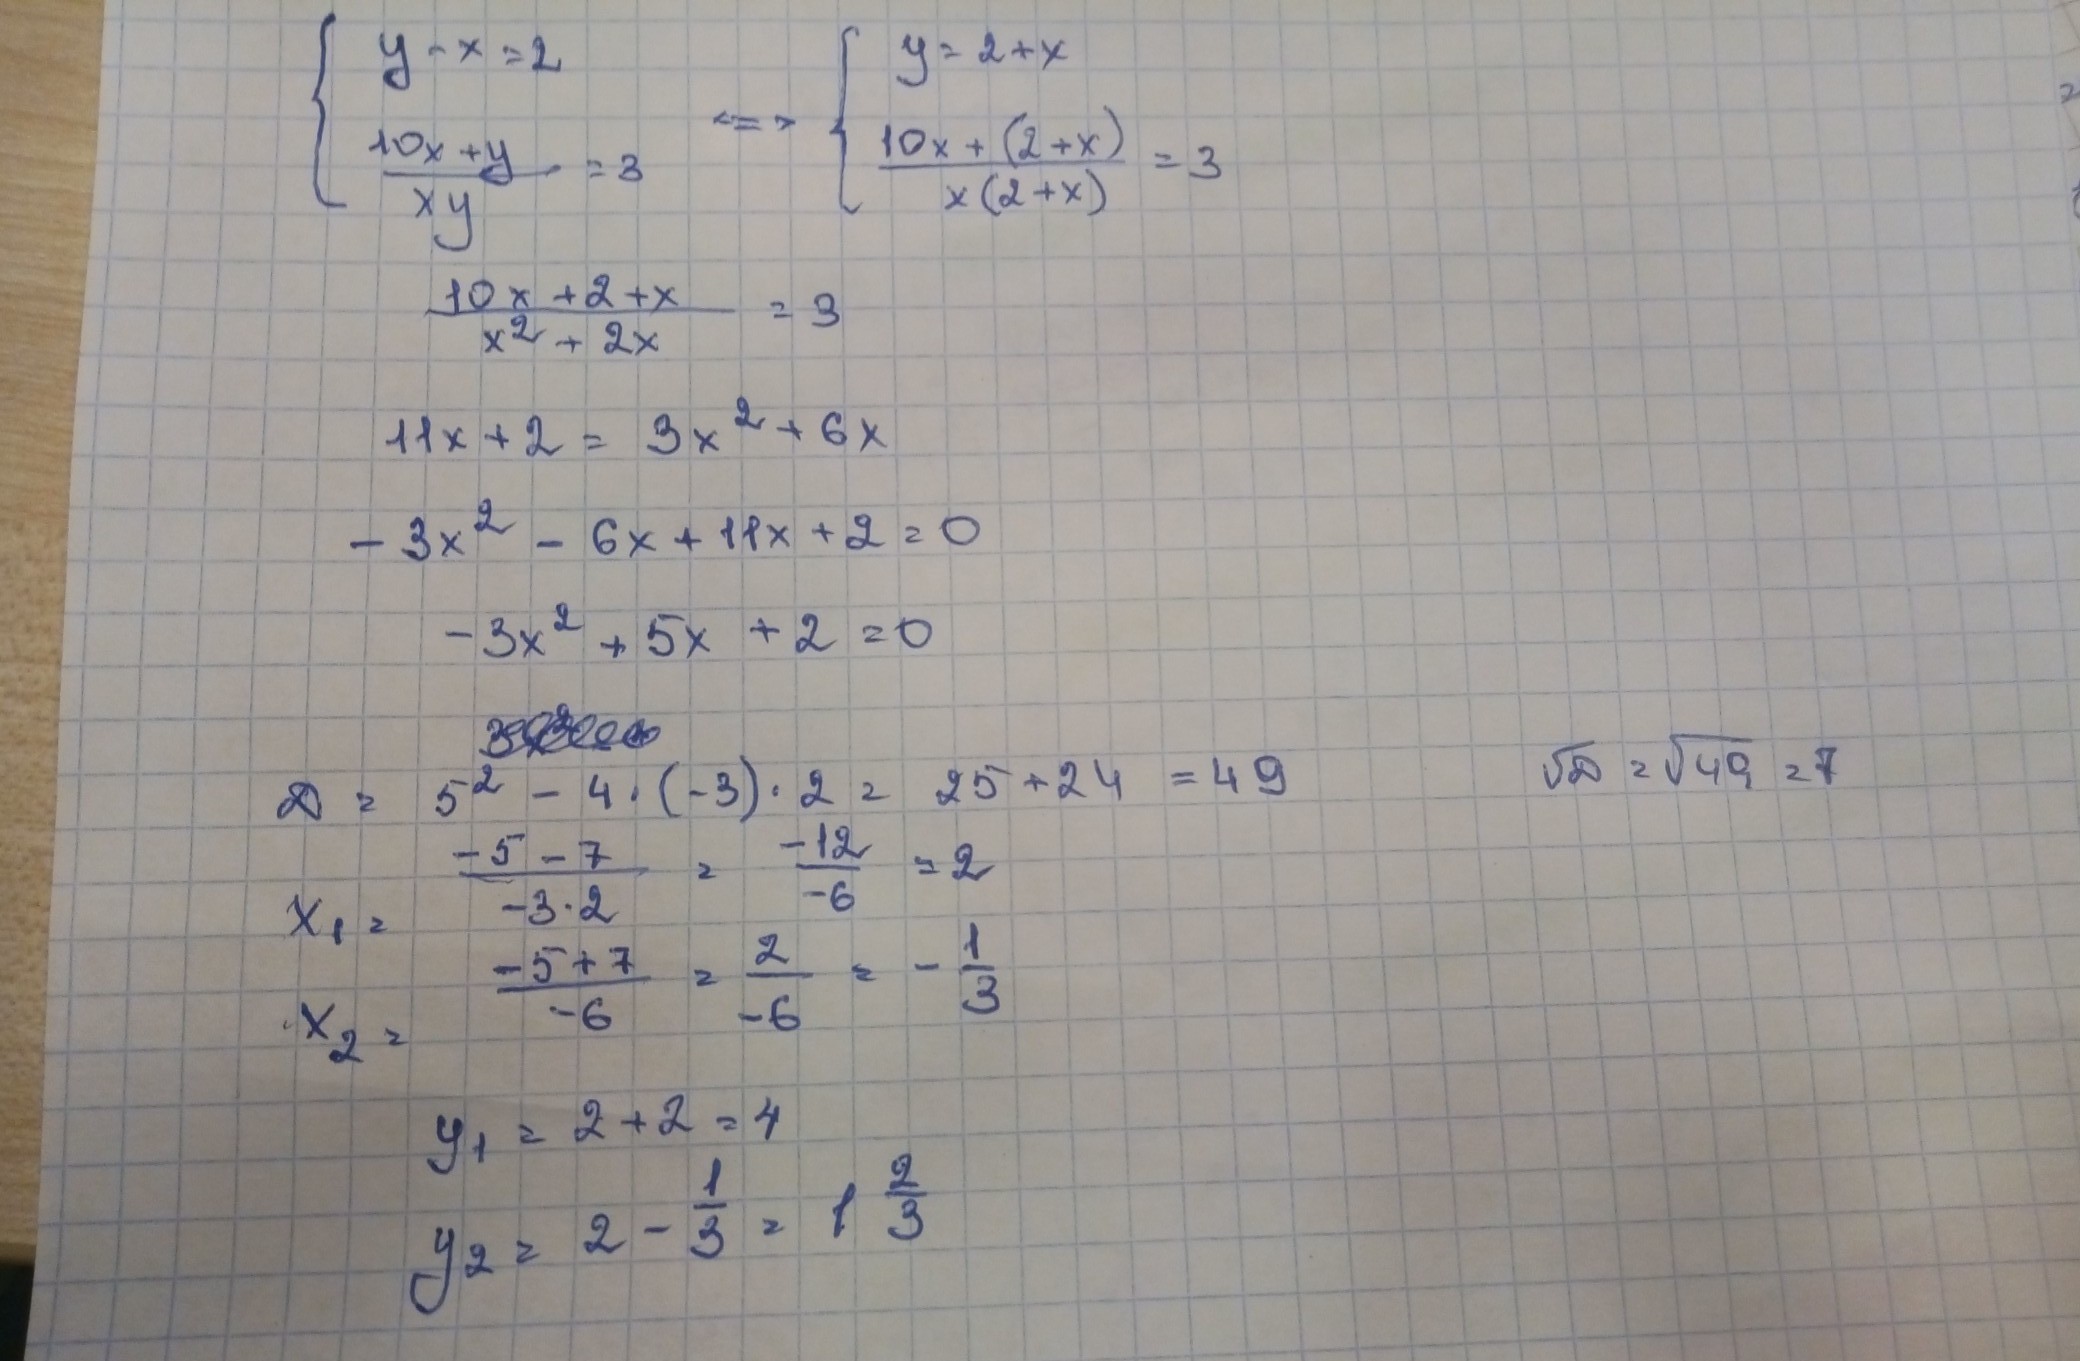 { y - x = 2 <=> { y = 2 + x
(10x + y)/(xy) = 3 (10x + (2 + x))/(x(2 + x)) = 3
(10x + 2 + x)/(x² + 2x) = 3
11x + 2 = 3x² + 6x
- 3x² - 6x + 11x + 2 = 0
- 3x² + 5x + 2 = 0
D = 5² - 4 · (-3) · 2 = 25 + 24 = 49 √D = √49 = 7
x₁ = (-5 - 7)/(-3·2) = (-12)/(-6) = 2
x₂ = (-5 + 7)/(-6) = 2/(-6) = - 1/3
y₁ = 2 + 2 = 4
y₂ = 2 - 1/3 = 1 2/3